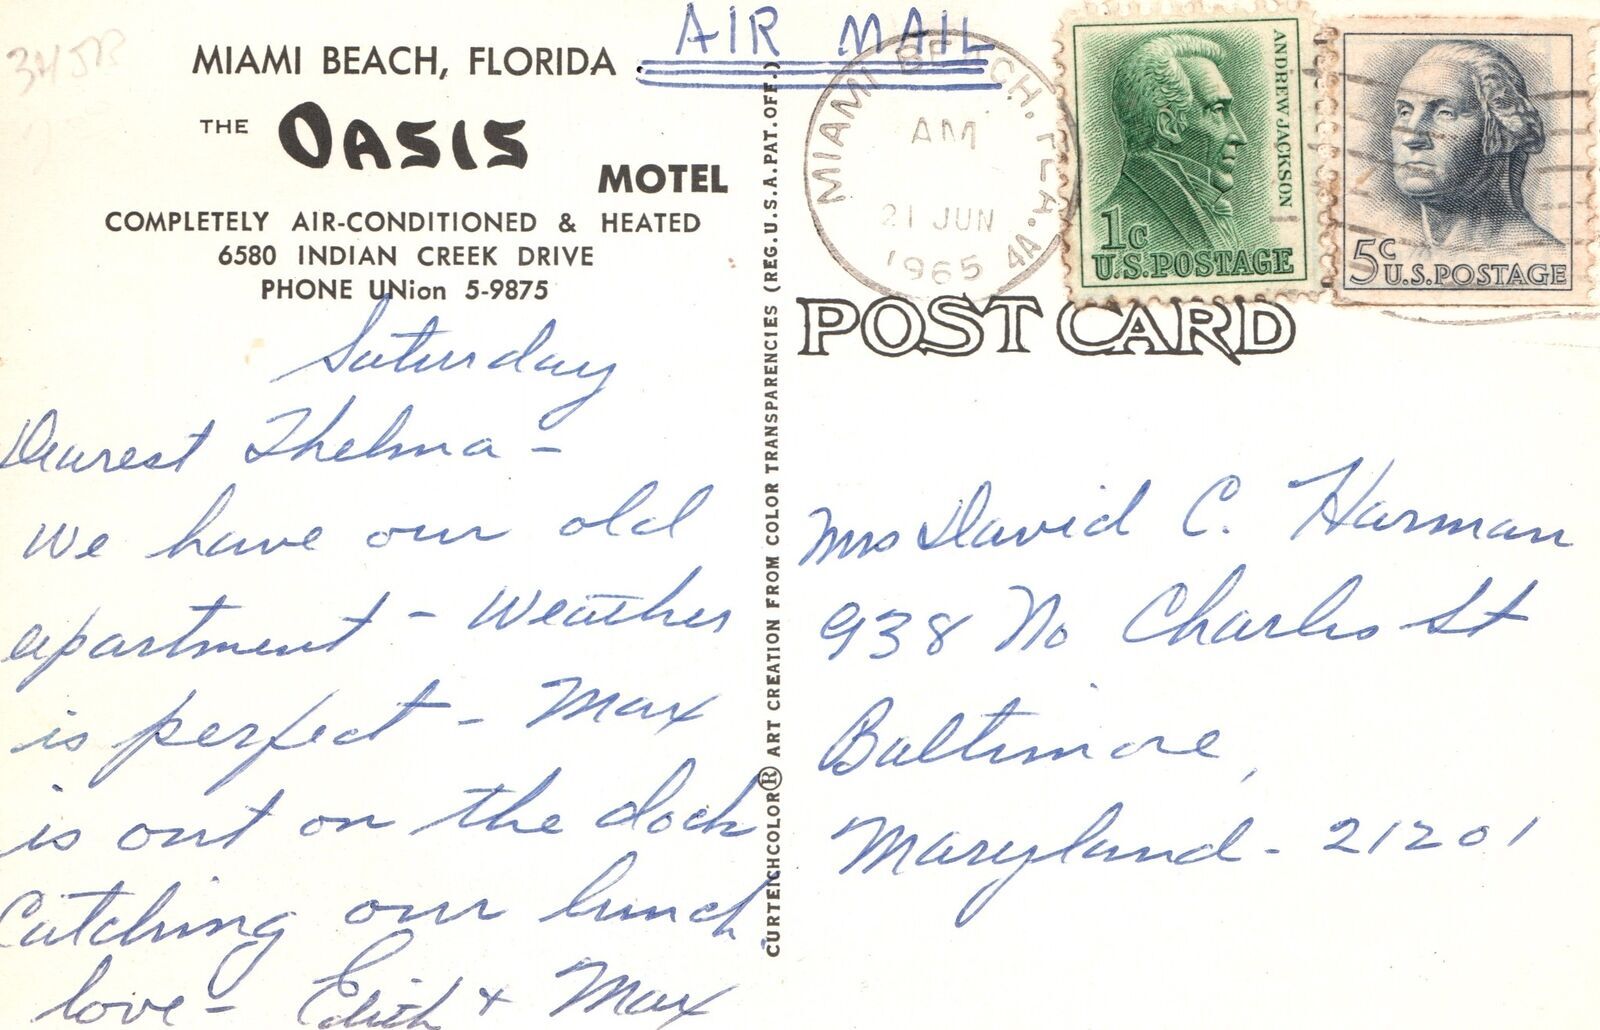 345B
AIR MAIL
MIAMI BEACH, FLORIDA
THE OASIS MOTEL
COMPLETELY AIR-CONDITIONED & HEATED
6580 INDIAN CREEK DRIVE
PHONE UNion 5-9875
Saturday
Dearest Thelma -
We have our old
apartment - Weather
is perfect - Max
is out on the dock
Catching our lunch.
love - Edith & Max
CURTEICHCOLOR® ART CREATION FROM COLOR TRANSPARENCIES (REG. U.S.A. PAT. OFF.)
MIAMI BEACH, FLA. 4A
AM
21 JUN
1965
ANDREW JACKSON
1c
U.S. POSTAGE
5c
U.S. POSTAGE
POST CARD
Mrs David C. Harman
938 No Charles St
Baltimore,
Maryland - 21201